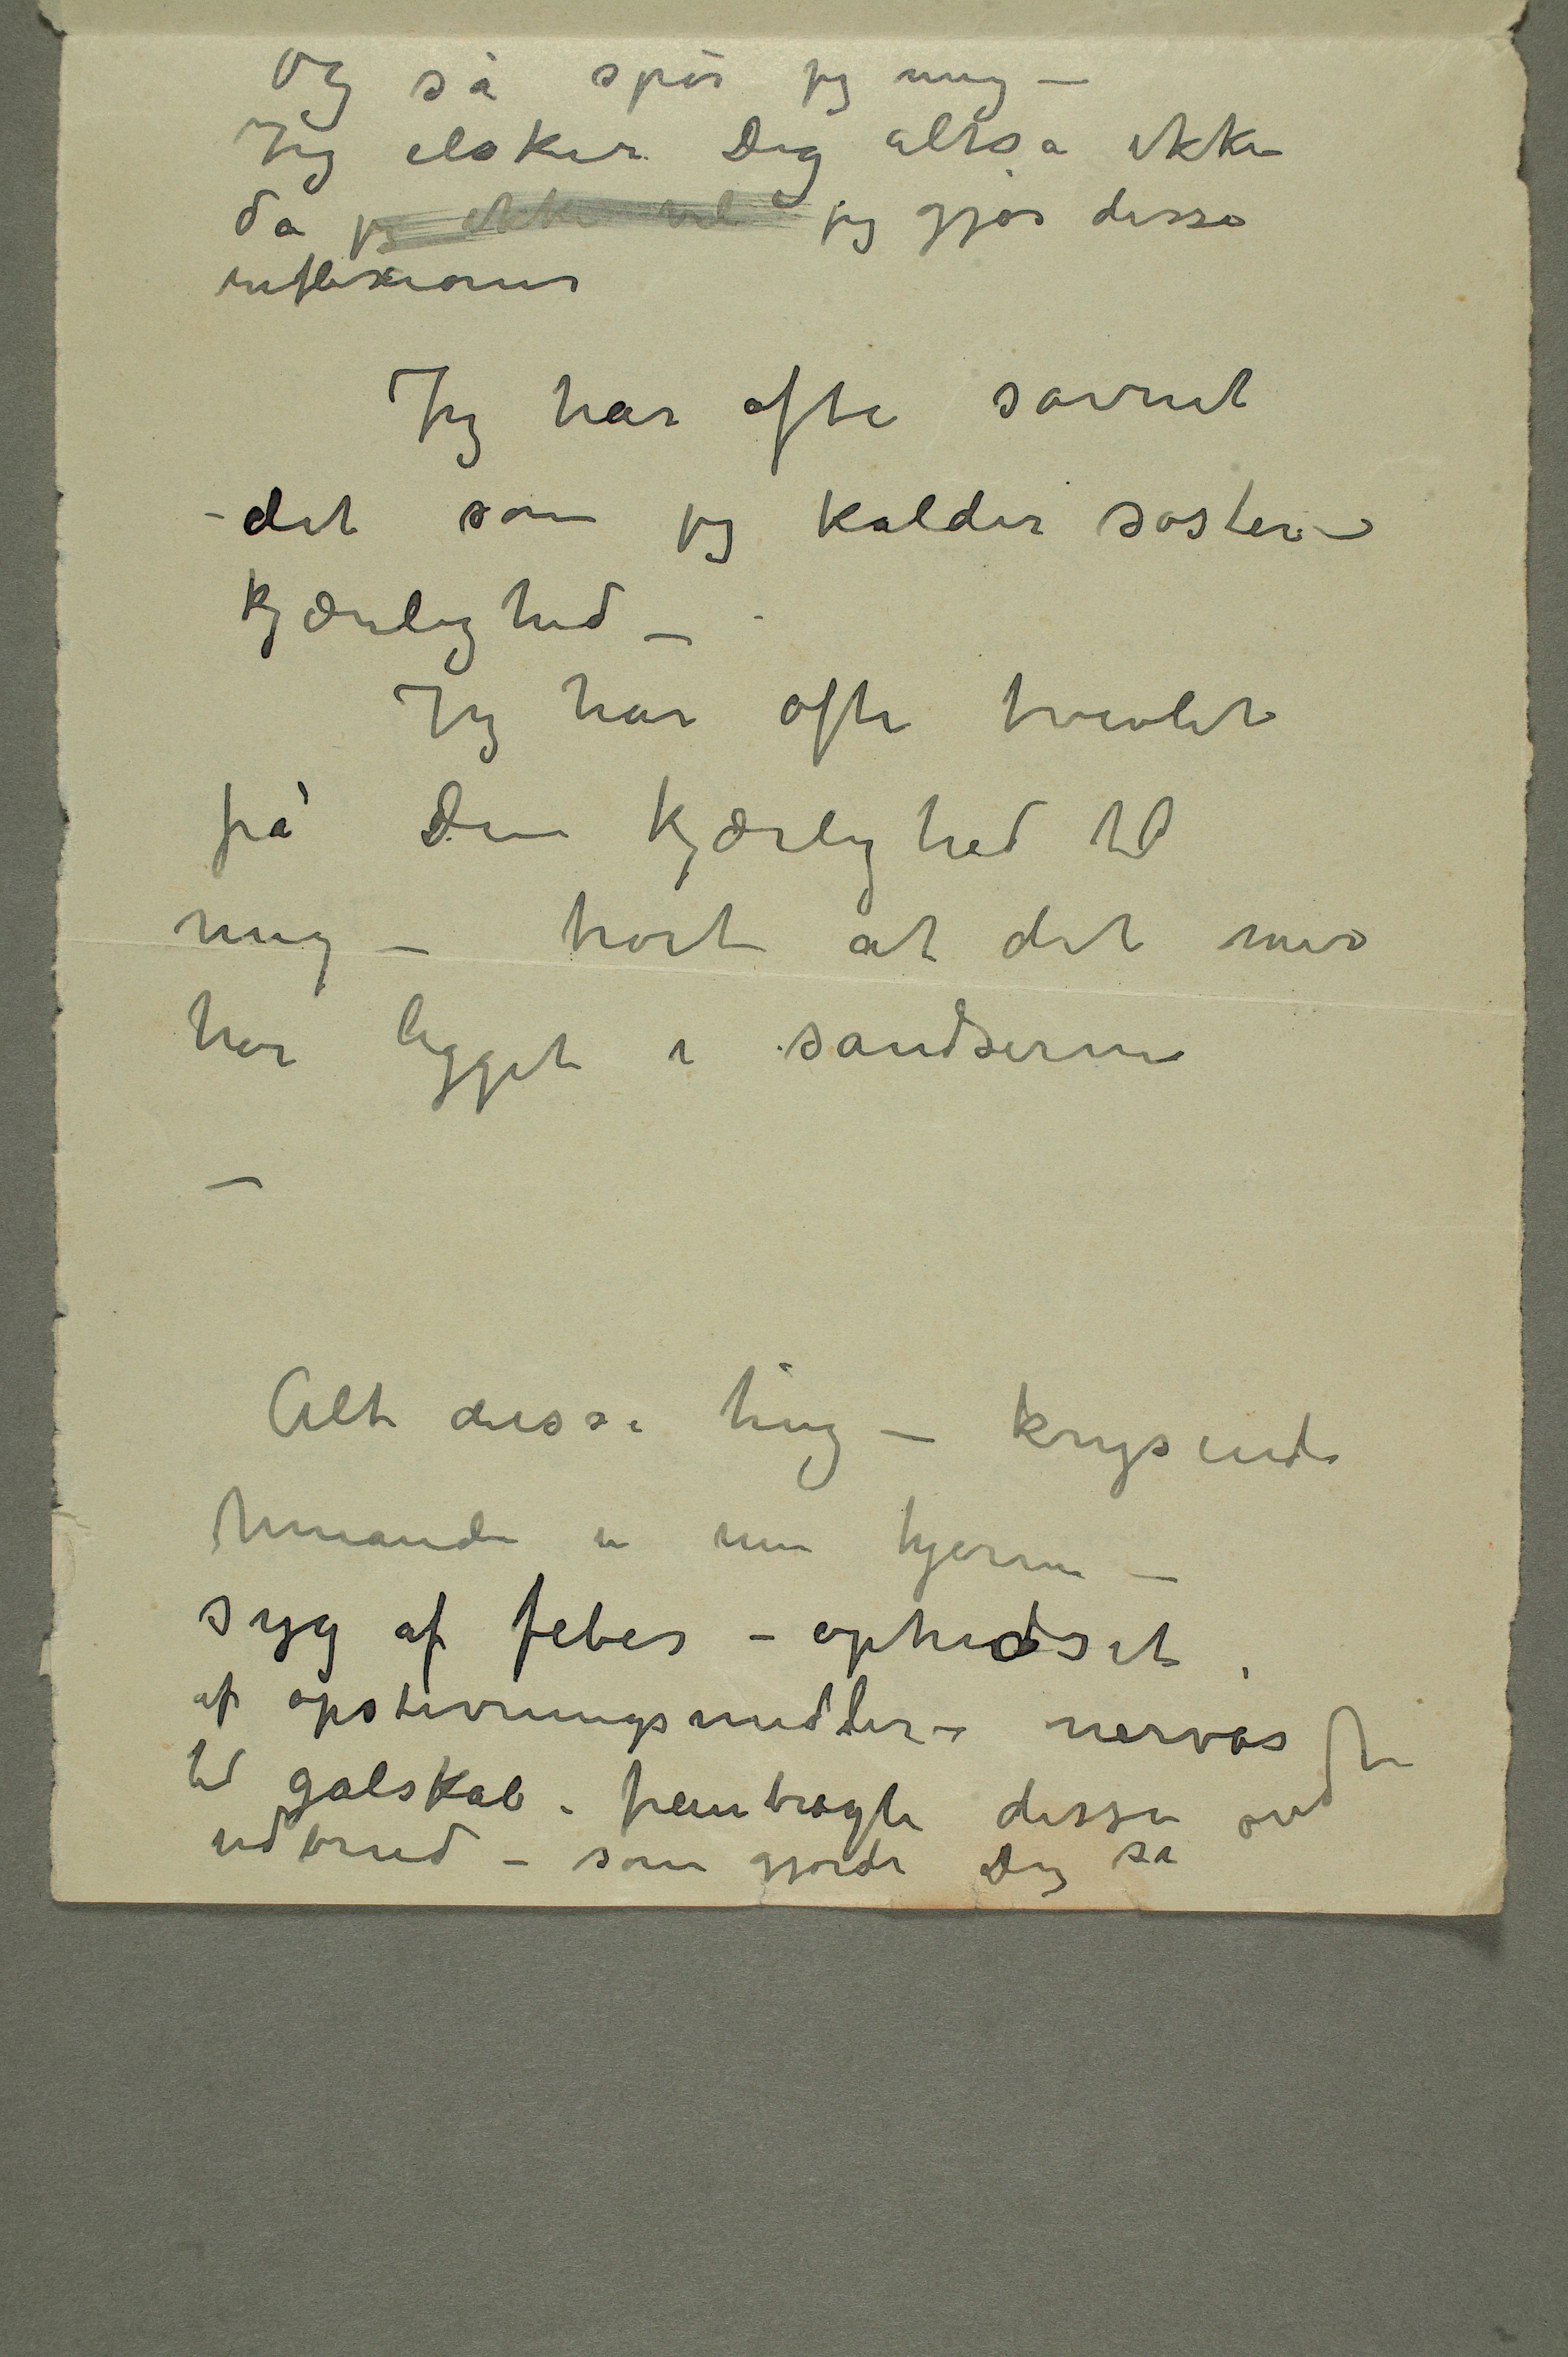 Og så spør jeg mig –
Jeg elsker Dig altså ikke
da jeg ikke vil jeg gjør disse
reflexioner
Jeg har ofte savnet
– det som jeg kalder søster-
kjærlighed –
Jeg har ofte tvivlet
på Din kjærlighed til
mig – trott at det mer
har ligget i sandserne
–
Alt disse ting – krysende
hinanden i min hjerne –
syg af feber – ophidset
af opstivningsmidler – nervøs
til galskab – frembragte disse
udbrud – som gjorde Dig så ondt